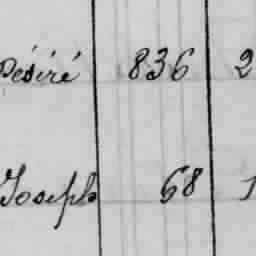 Désiré 836 2
Joseph 68 1